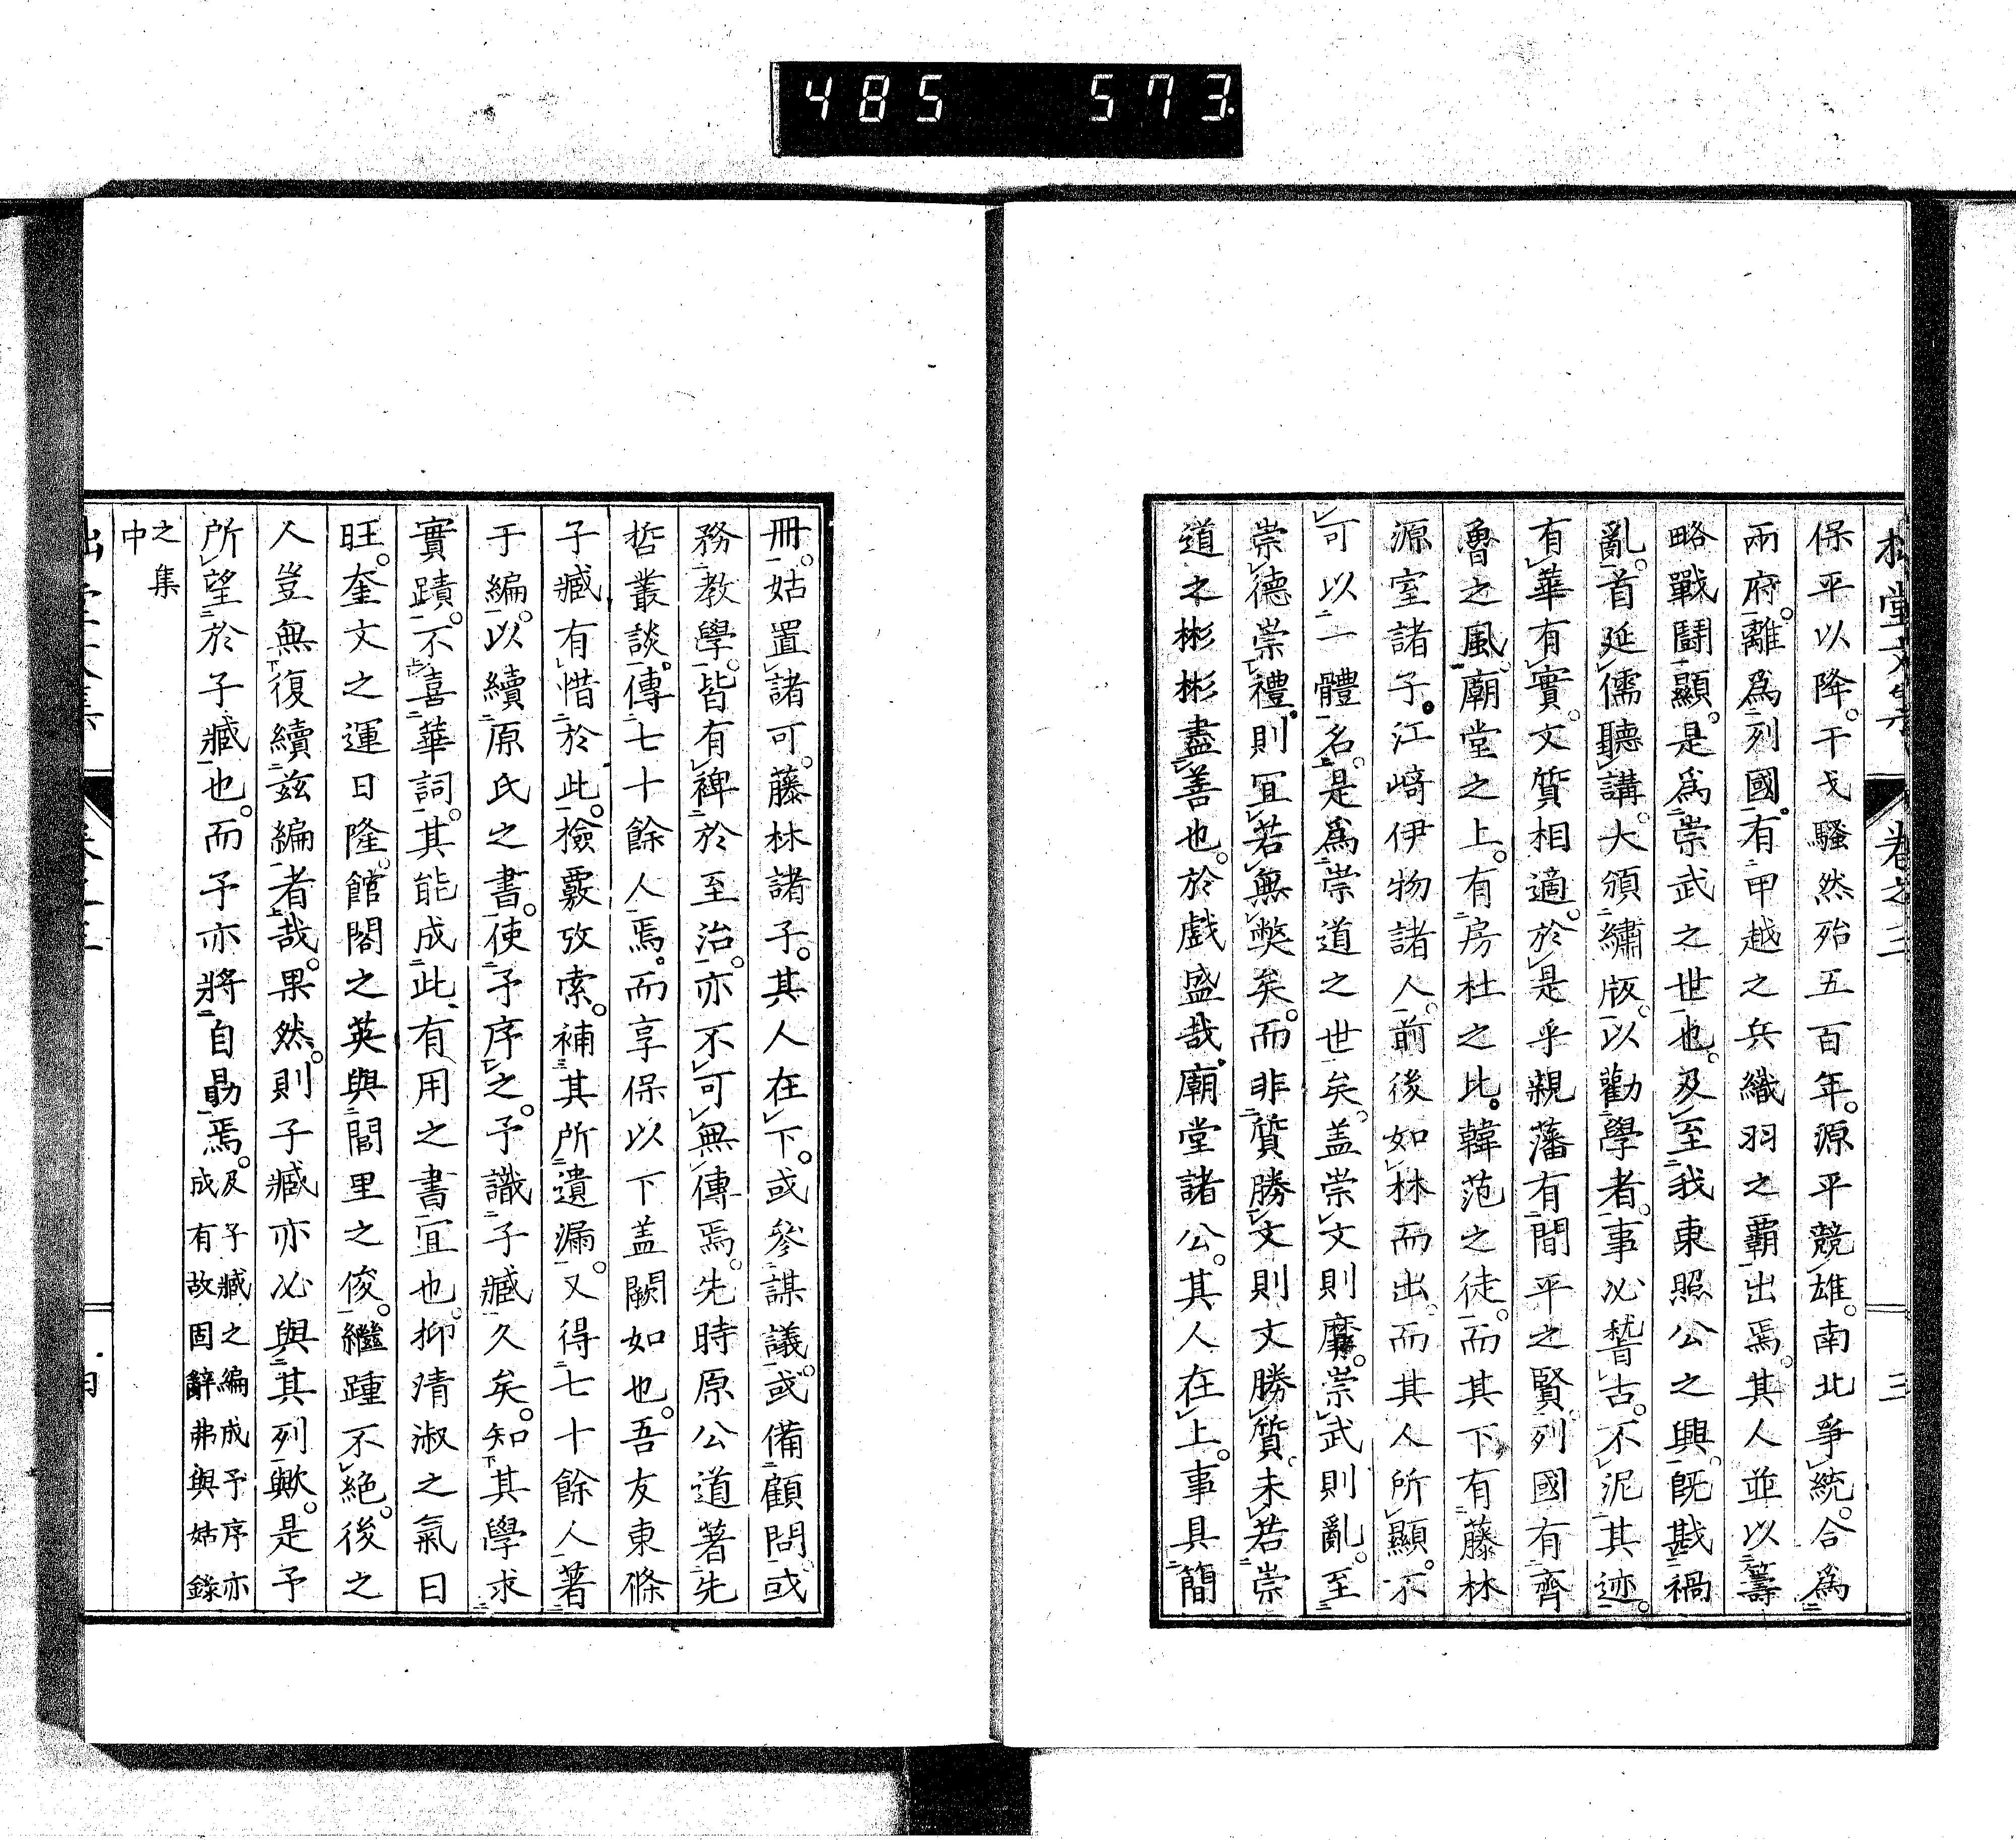 485 573
保平以降。干戈騷然殆五百年。源平競雄。南北爭統。合爲
兩府。離爲列國。有甲越之兵織羽之霸出焉。其人並以籌
略戰鬪顯。是爲崇武之世也。及至我東照公之興。旣戡禍
亂。首延儒聽講。大頒繡版。以勸學者。事必稽古。不泥其迹。
有華有實。文質相適。於是乎親藩有間平之賢。列國有齊
魯之風。廟堂之上。有房杜之比。韓范之徒。而其下有藤林
源室諸子。江﨑伊物諸人。前後如林而出。而其人所顯。不
可以一體名。是爲崇道之世矣。盖崇文則靡。崇武則亂。至
崇德崇禮。則宜若無獘矣。而非質勝文則文勝質。未若崇
道之彬彬盡善也。於戲盛哉。廟堂諸公。其人在上。事具簡
冊。姑置諸可。藤林諸子。其人在下。或參謀議。或備顧問。或
務教學。皆有裨於至治。亦不可無傳焉。先時原公道著先
哲叢談。傳七十餘人焉。而享保以下盖闕如也。吾友東條
子臧有惜於此。檢覈攷索。補其所遺漏。又得七十餘人。著
于編。以續原氏之書。使予序之。予識子臧久矣。知其學求
實蹟。不喜華詞。其能成此有用之書宜也。抑淸淑之氣日
旺。奎文之運日隆。館閣之英與閭里之俊。繼踵不絕。後之
人豈無復續玆編者哉。果然。則子臧亦必與其列歟。是予
所望於子臧也。而予亦將自勗焉。
及子臧之編成予序亦
成有故固辭弗與姑錄
之集
中
卷之三
三